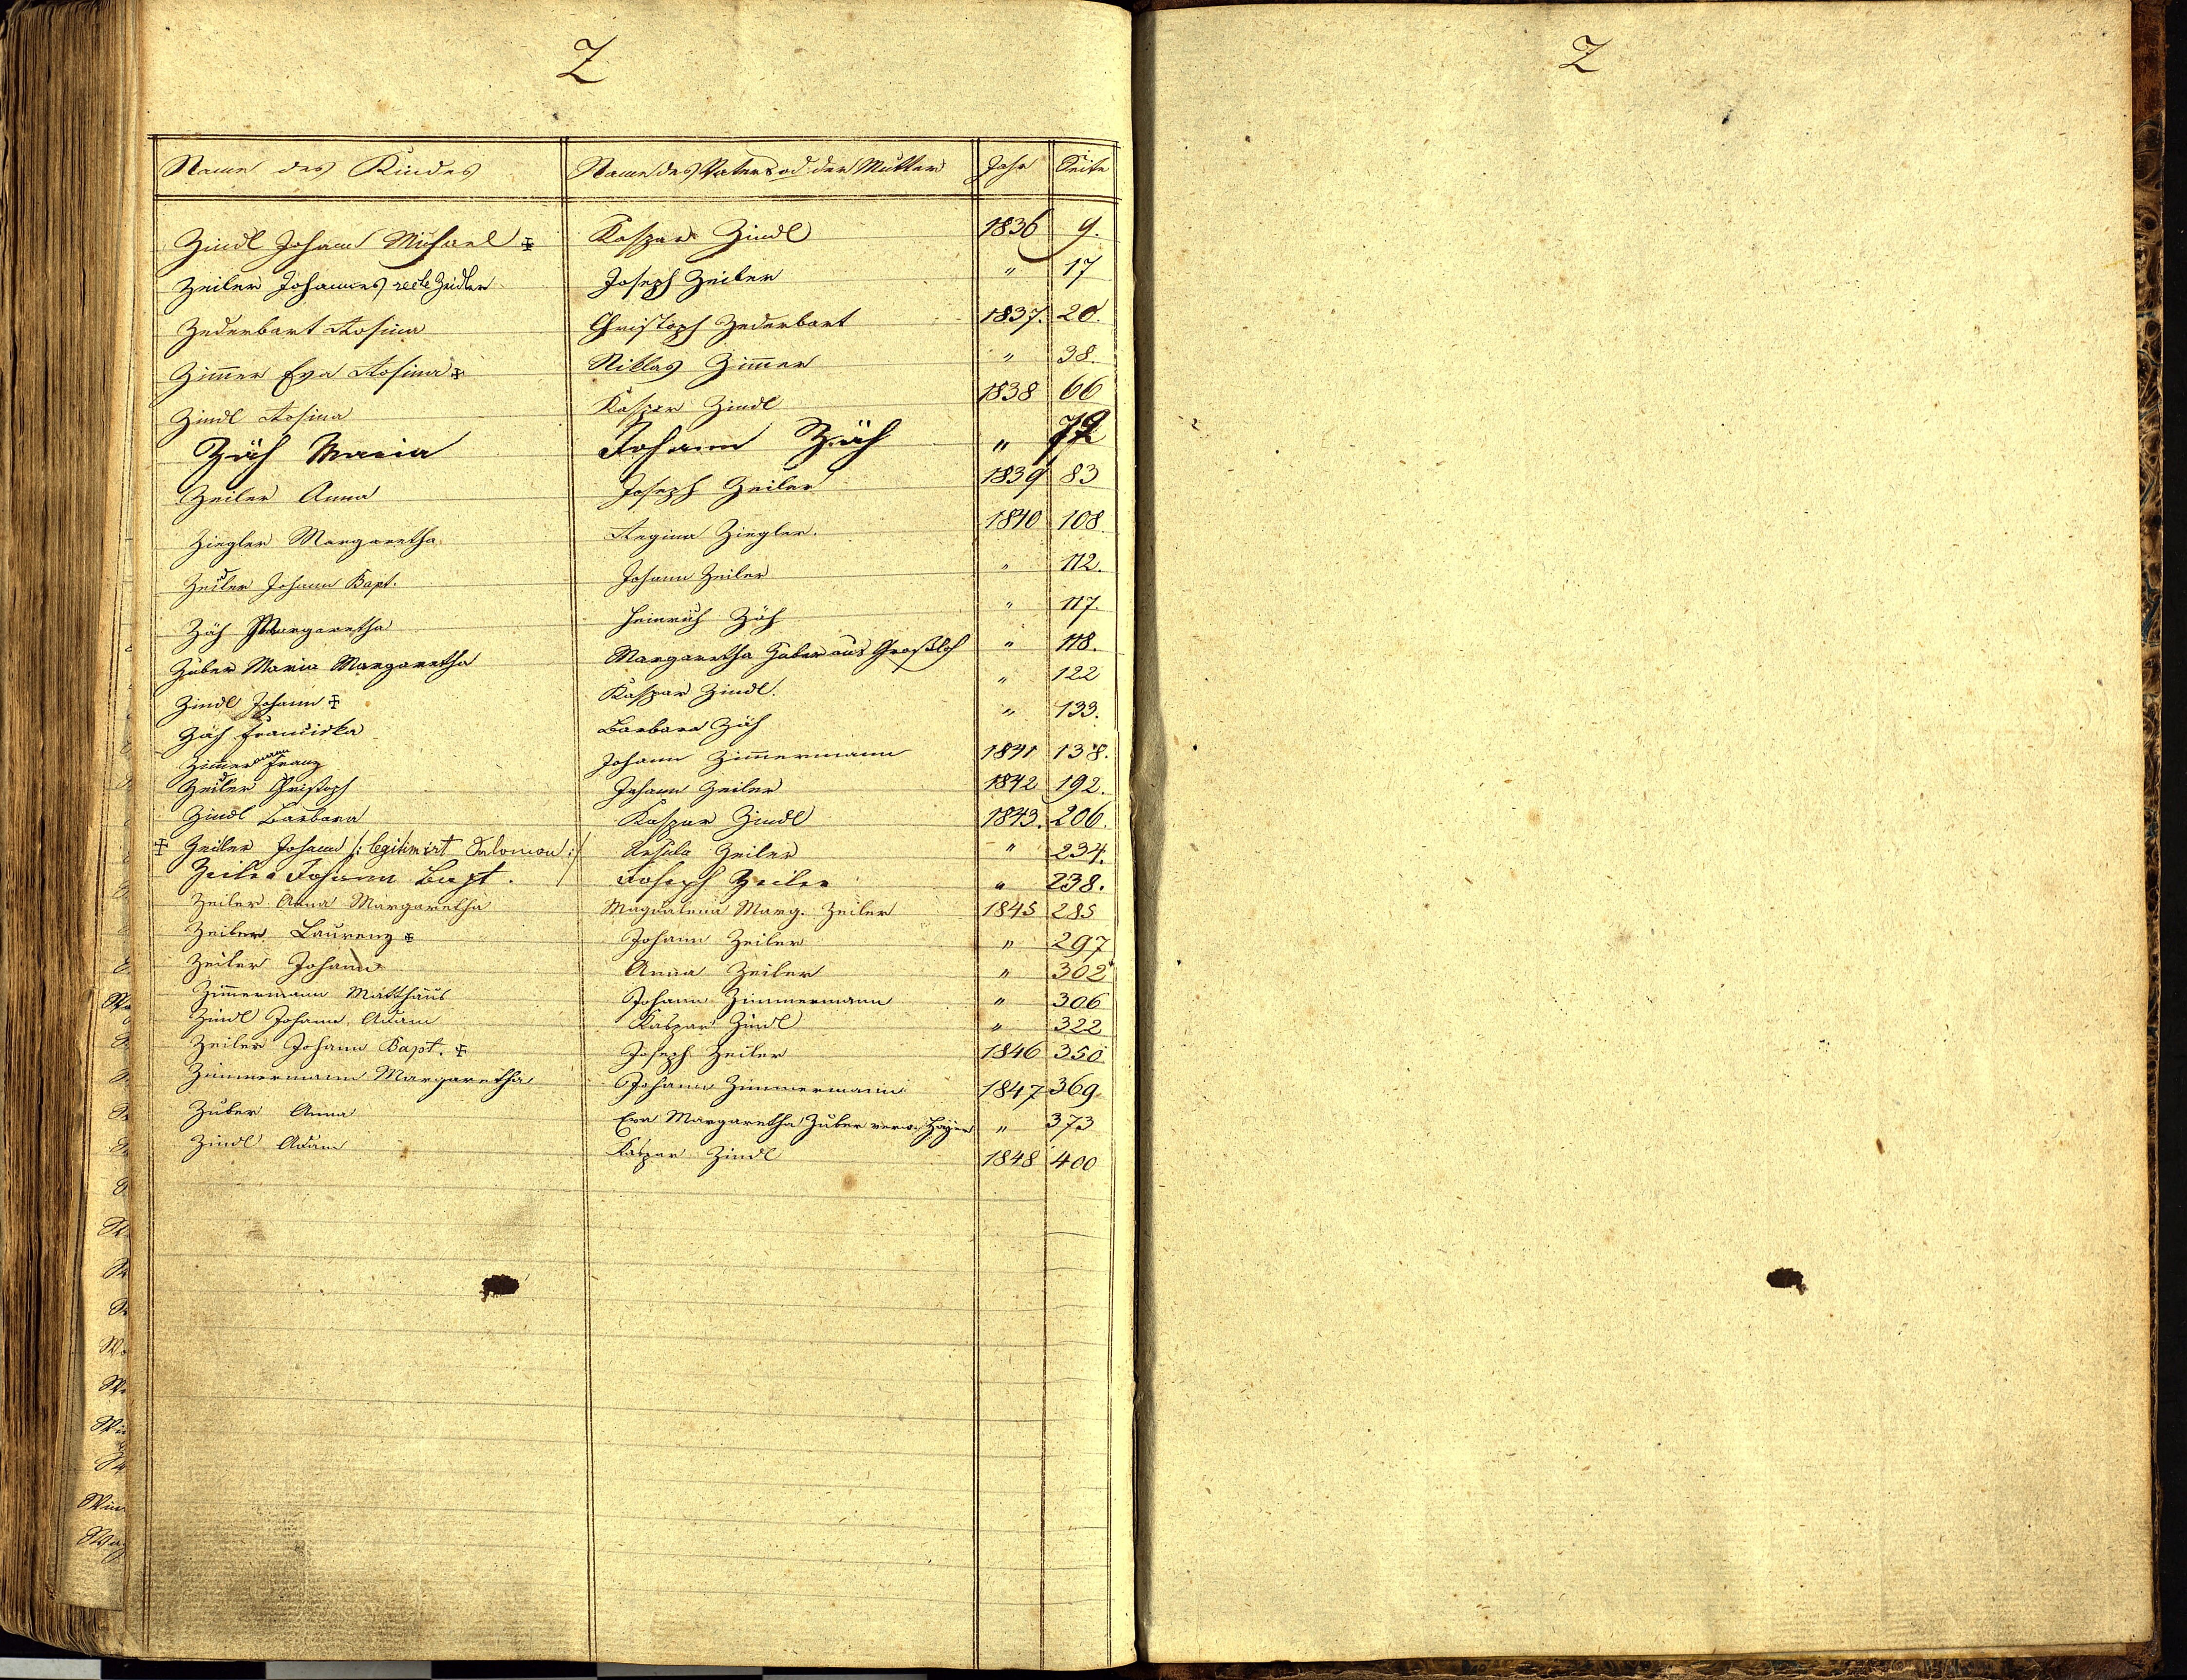 Z
Name des Kindes Name des Vaters od. der Mutter Jahr Seite
Zindl Johann Michael ✠ Kaspar Zindl 1836 9.
Zeiler Johannes recte Zeidler Joseph Zeiler " 17
Zederbart Rosina Christoph Zederbart 1837. 20.
Zim̅er Eva Rosina ✠ Niklas Zim̅er " 38.
Zindl Rosina Kaspar Zindl 1838 66
Zäh Maria Johann Zäh "
Zeiler Anna Joseph Zeiler 1839 83
Ziegler Margaretha Regina Ziegler. 1840 108
Zeidler Johann Bapt. Johann Zeiler " 112.
Zäh Margaretha Heinrich Zäh " 117.
Zuber Maria Margaretha Margaretha Zuber aus " 118.
Zindl Johann ✠ Kaspar Zindl. " 122
Zäh Franciska Barbara Zäh " 133.
Zim̅ermann Franz Johann Zim̅ermann 1841 138.
Zeidler Christoph Johann Zeiler 1842 192.
Zindl Barbara Kaspar Zindl 1843. 206.
✠ Zeiler Johann /: legitimirt Salomon :/ Ursula Zeiler " 234.
Zeiler Johann Bapt. Joseph Zeiler " 238.
Zeiler Anna Margaretha Magdalena Marg. Zeiler 1845 285
Zeiler Laurenz ✠ Johann Zeiler " 297
Zeiler Johann Anna Zeiler " 302
Zim̅ermann Matthäus Johann Zimmermann " 306
Zindl Johann Adam Kaspar Zindl " 322
Zeiler Johann Bapt. ✠ Joseph Zeiler 1846 350
Zimmermann Margaretha Johann Zimmermann 1847 369.
Zuber Anna Eva Margaretha Zuber verw. " 373
Zindl Adam Kaspar Zindl 1848 400
Z